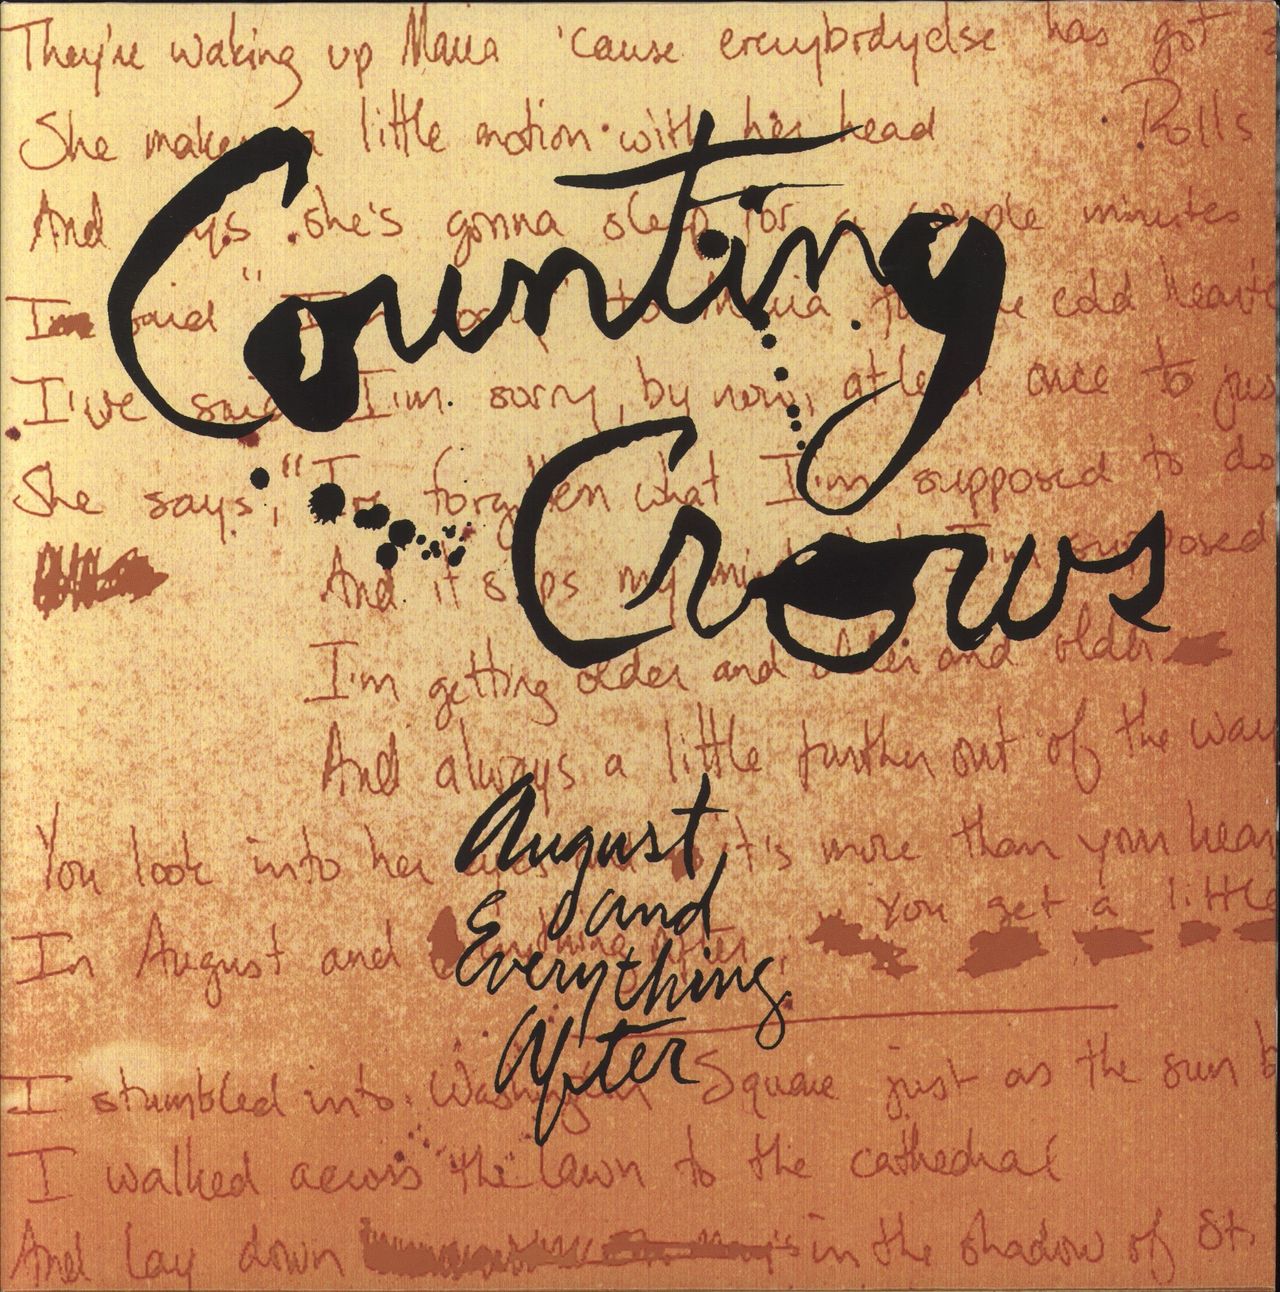 They're waking up Maria 'cause everybody else has got
She makes a little motion with her head
Rolls
And says she's gonna sleep for a couple minutes
Counting
I'm said " to Maria for the cold hearted
I've said I'm sorry, by now, at least once to just
She says, "I've forgotten what I'm supposed to do
Crows
And it slips my mind what I'm supposed
I'm getting older and older and older
And always a little further out of the way
August
and
Everything
After
You look into her eyes it's more than your heart
You get a little
In August and everything after
I stumbled into Washington Square just as the sun b
I walked across the lawn to the cathedral
And lay down in the shadow of St.